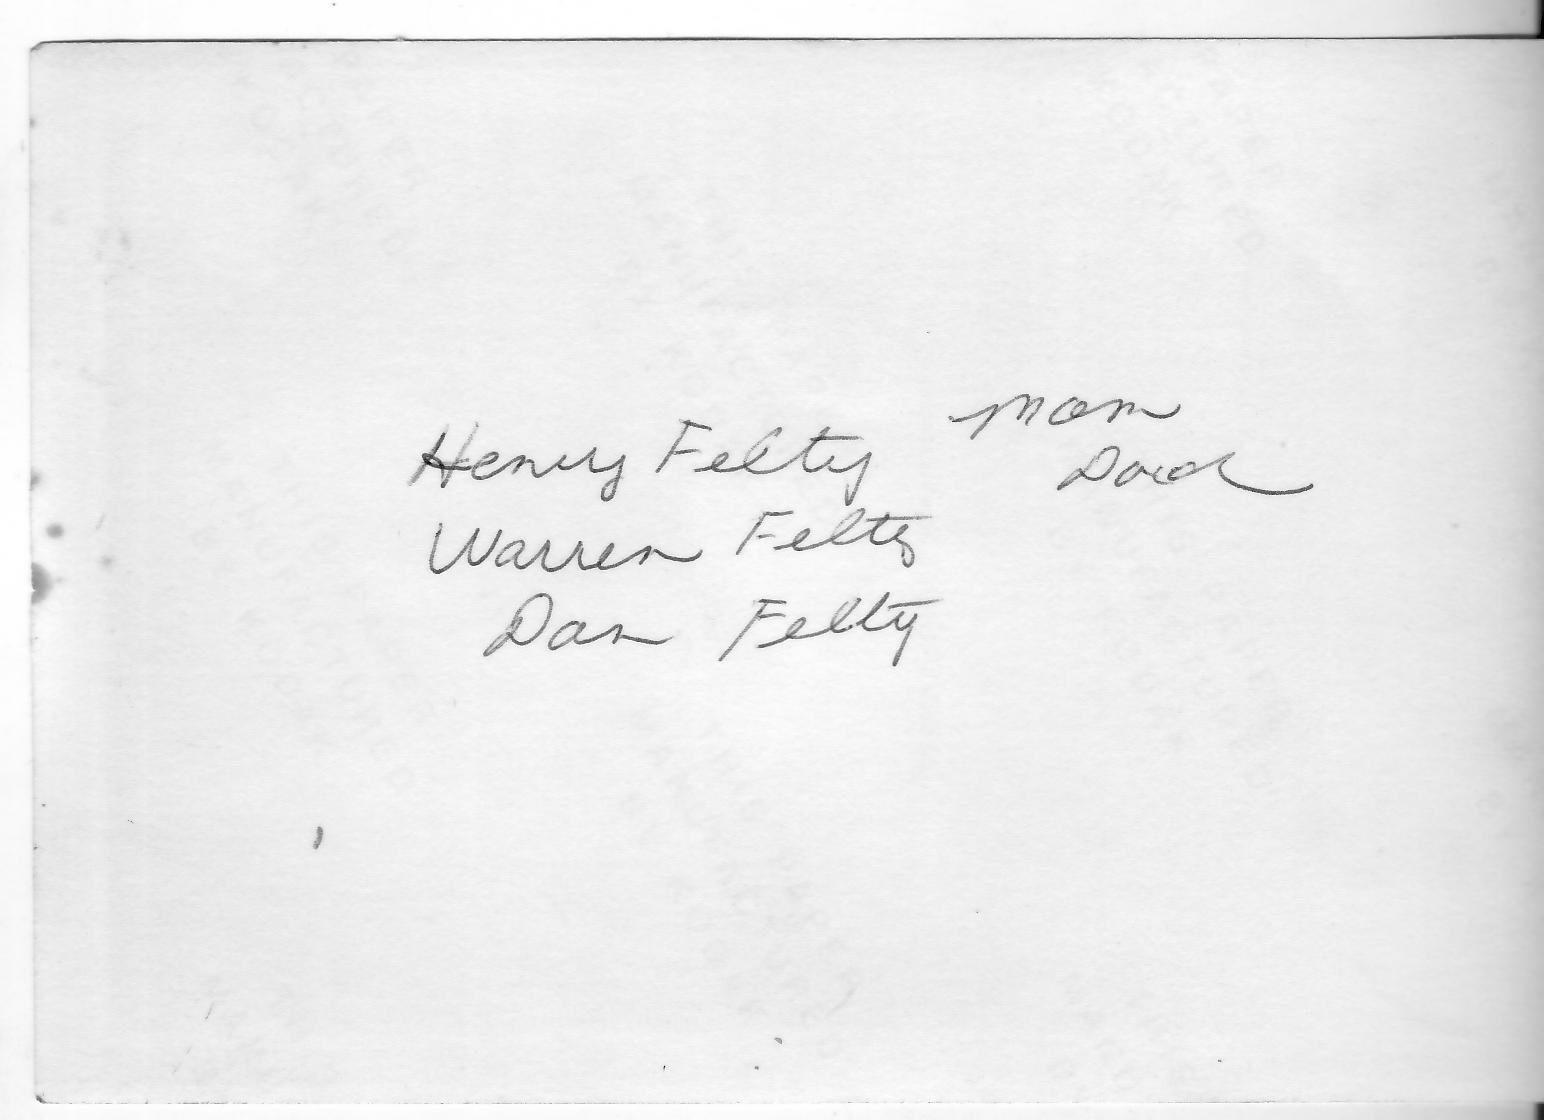 Mom
Henry Felty Dad
Warren Felty
Dan Felty